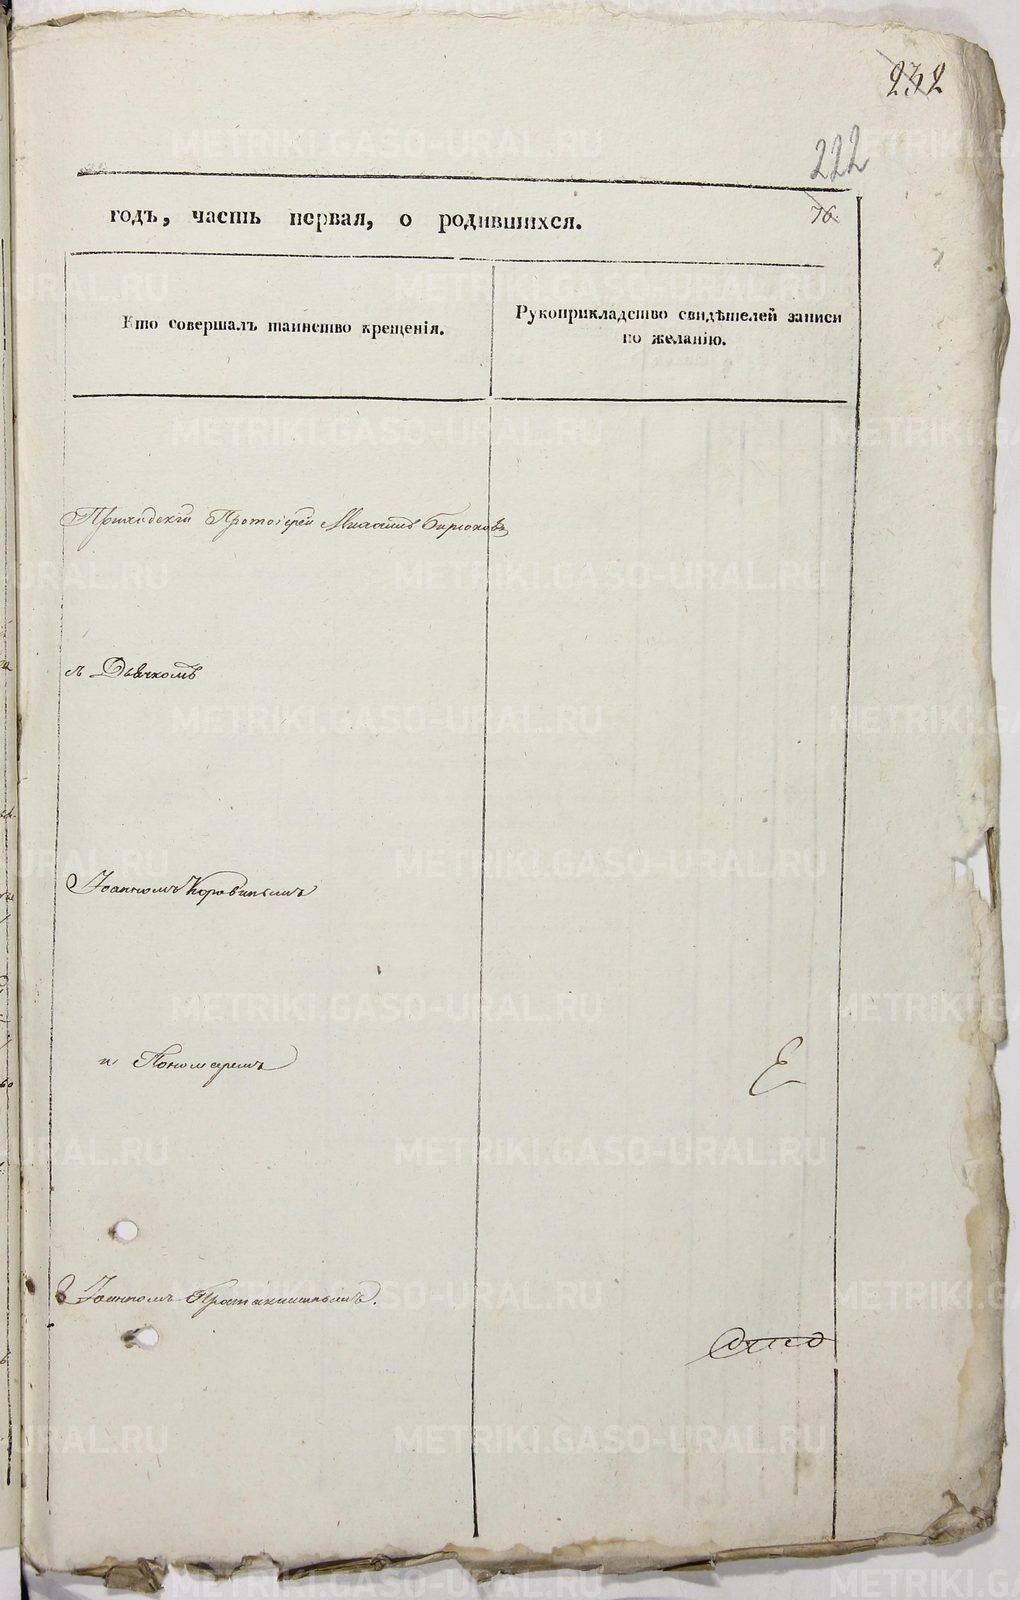 232
222
годъ, часть первая, о родившихся.
76.
Кто совершалъ таинство крещенія.
Рукоприкладство свидѣтелей записи
по желанію.
Приходскій Протоіерей Михаилъ Бирюковъ
съ Дьячкомъ
Іоанномъ Коровинымъ
и Пономаремъ
Іоанномъ
METRIKI.GASO-URAL.RU